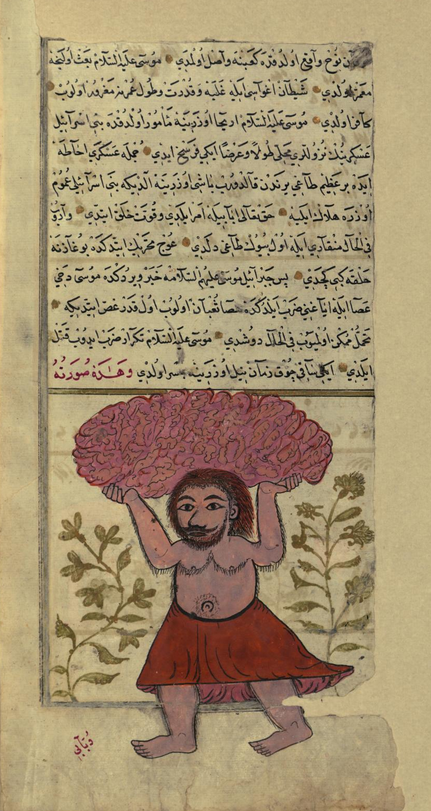 نوح واقع اولدقده كعبينه واصل اولمدي موسى عليه السلام بعث اولنجه
معمر اولدي شيطان اغواسي ايله غلبه و قدرت و طول عمرينه مغرور اولوب
كافر اولدي موسى عليه السلام اريحا اوزرينه مأمور اولدقده بني اسرائيل
عسكرينك محلي طولا و عرضا ايكي فرسخ ايدي جمله عسكري احاطه
ايده بر عظيم طاغي يرندن قالدروب باشي اوزرينه الدي كه بني اسرائيل عموم
اوزره هلاك ايليه حق تعالى امر ايلدي و قوت خلق ايتدي
في الحال منقاري ايله اول بيوك طاغي دلدي عوج ايتدكده بوغازنه
حلقه كبي كچدي پس جبرائيل موسى عليهم السلامه خبر ويردكده موسى دخي
عصا ايله اياغني ضرب ايلدكده عصا ثعبان اولوب اول قدر غضب ايتدي كه
تحمل ممكن اولميوب في الحال دوشدي موسى عليه السلام تكرار ضرب ايدوب قتل
ايلدي ايكي ساقي چوق زمان نيل اوزرينه جسر اولدي وهذه صورته